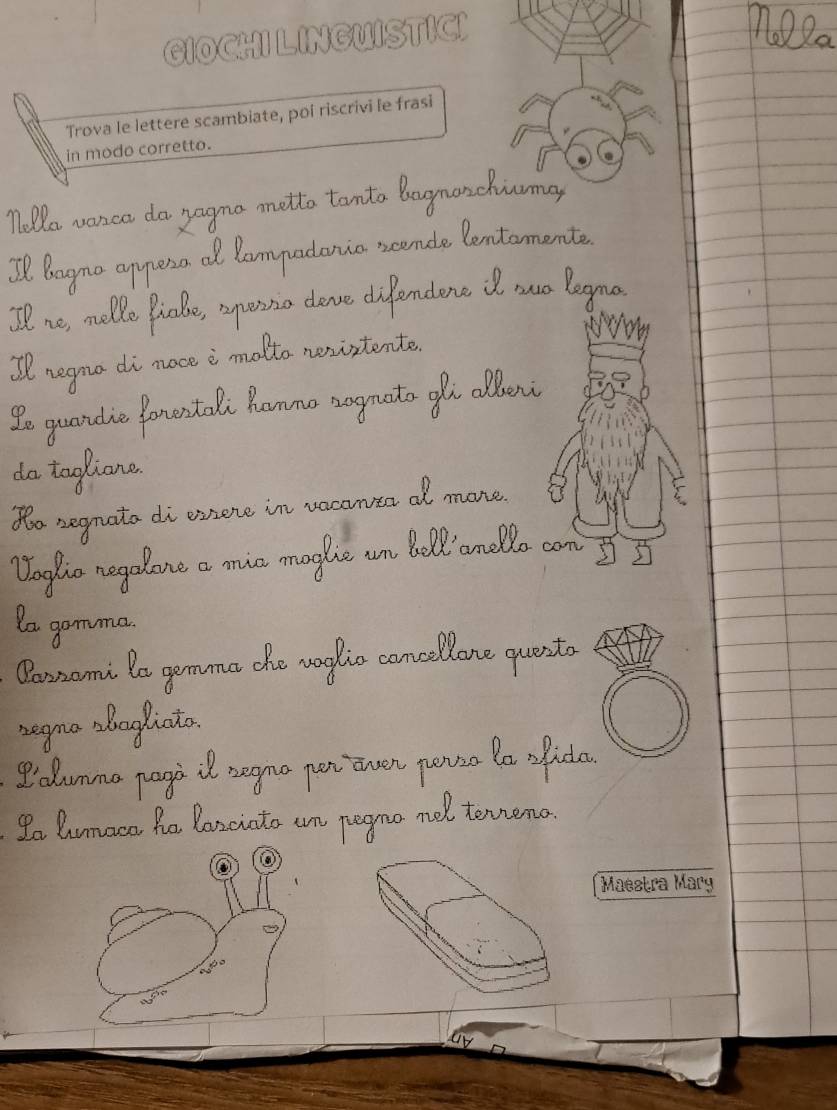 GIOCHI LINGUISTICI
Nella
Trova le lettere scambiate, poi riscrivi le frasi
in modo corretto.
Nella vasca da ragno metto tanto bagnoschiuma
Il bagno appeso al lampadario scende lentamente.
Il re, nelle fiabe, spesso deve difendere il suo legno.
Il regno di noce è molto resistente.
Le guardie forestali hanno sognato gli alberi
da tagliare.
Ho segnato di essere in vacanza al mare.
Voglio regalare a mia moglie un bell'anello con
la gomma.
Passami la gemma che voglio cancellare questo
segno sbagliato.
L'alunno pagò il segno per aver perso la sfida.
La lumaca ha lasciato un pegno nel terreno.
Maestra Mary